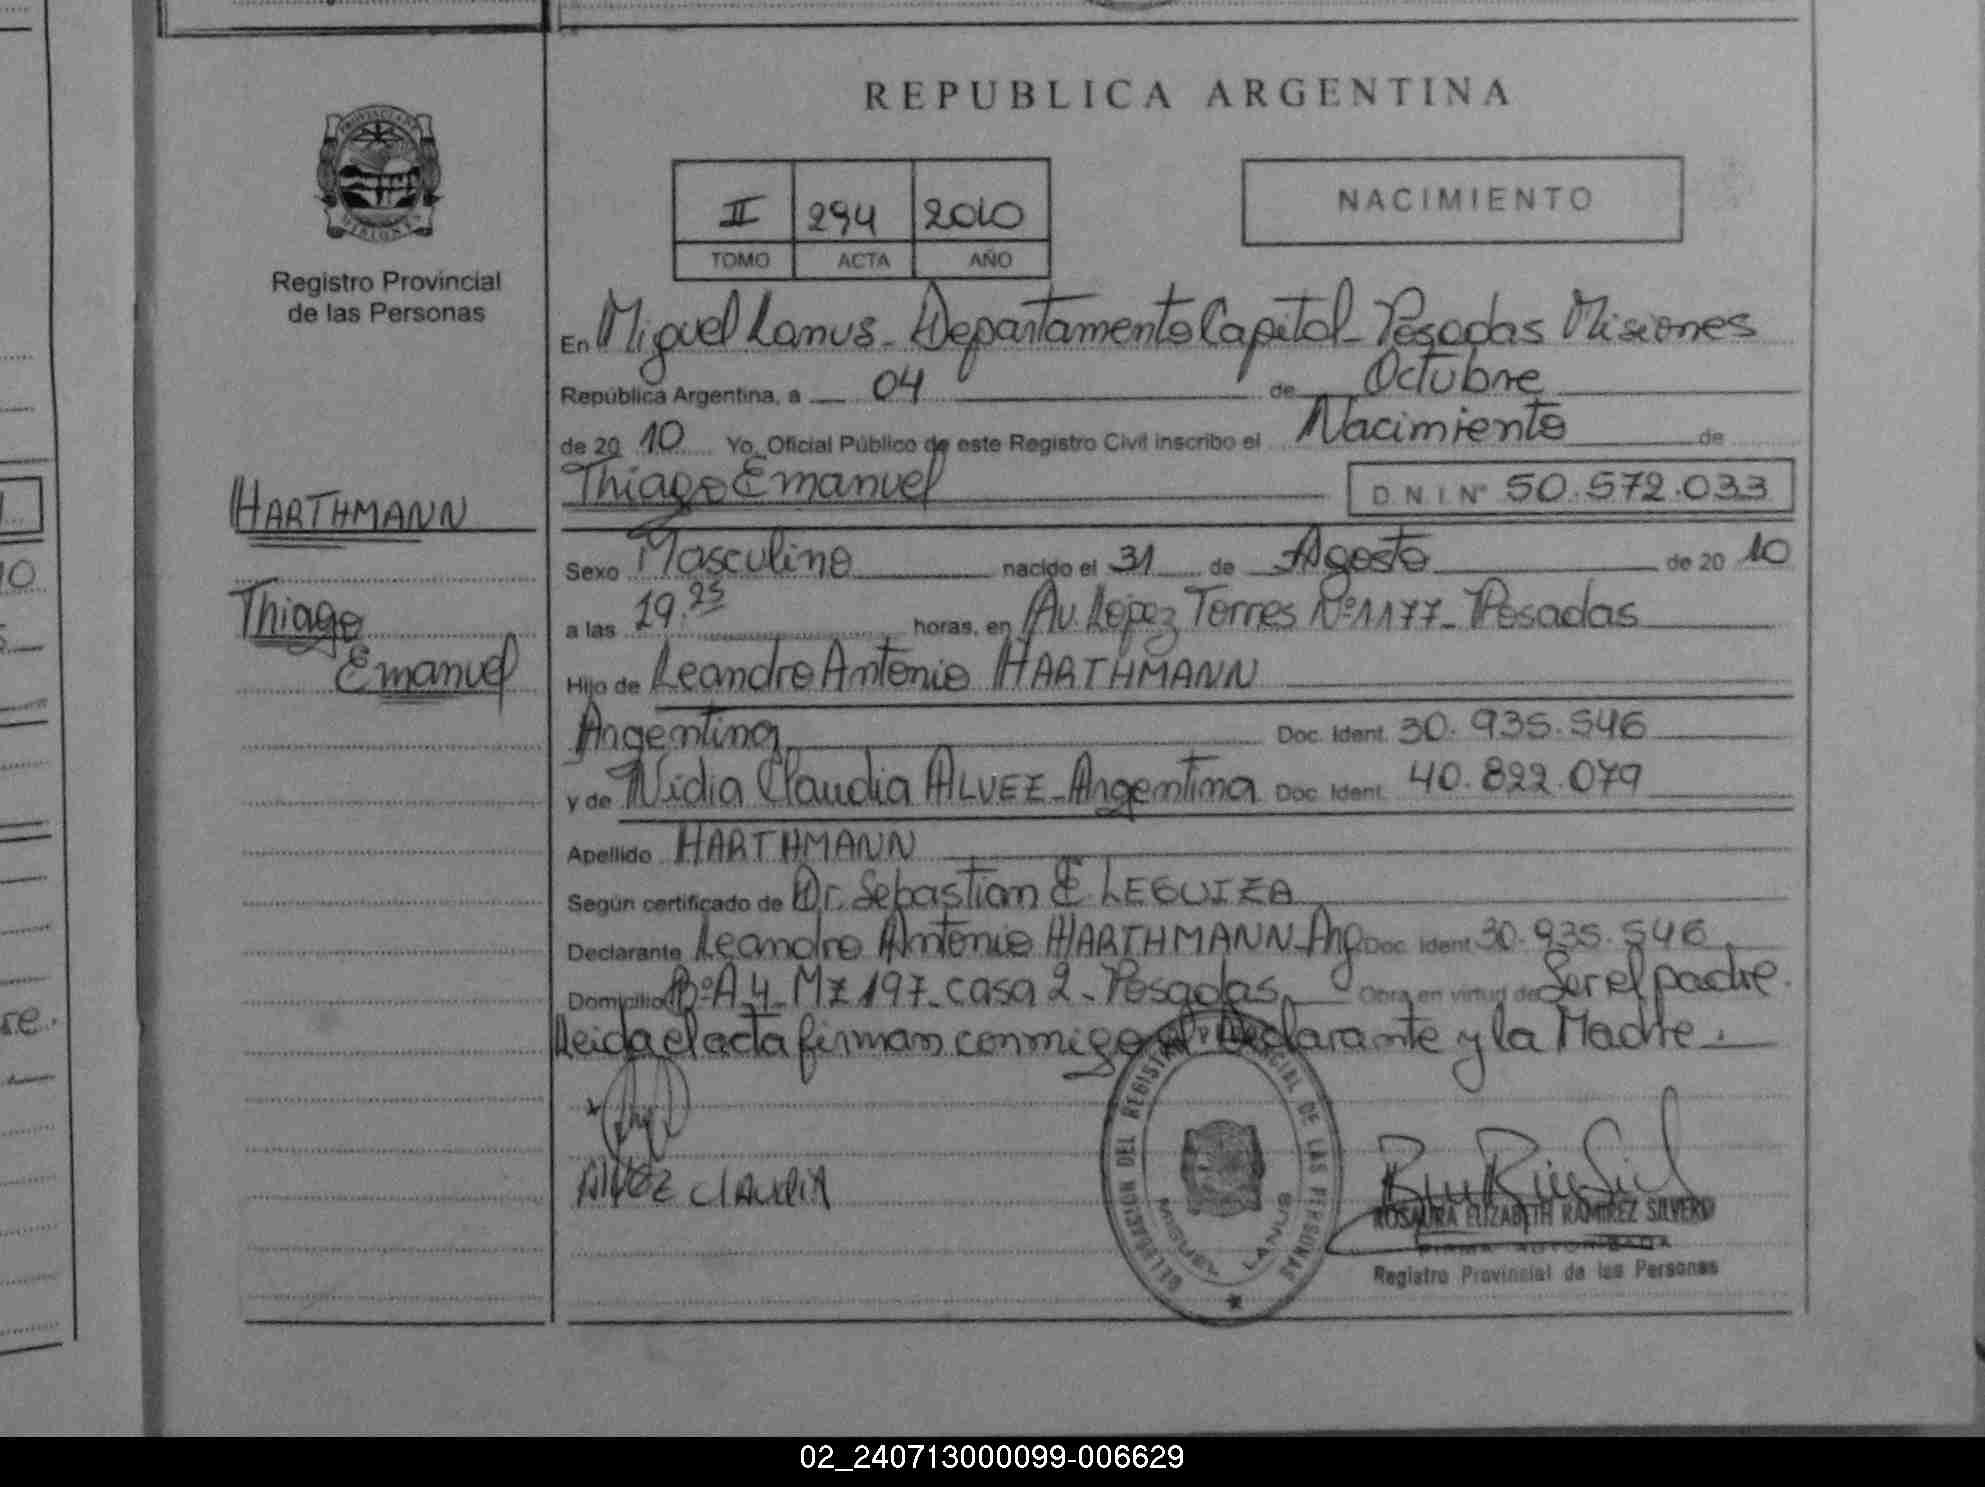 REPUBLICA ARGENTINA
PROVINCIA DE MISIONES
Registro Provincial
de las Personas
HARTHMANN
Thiago
Emanuel
II 294 2010
TOMO ACTA AÑO
NACIMIENTO
En Miguel Lanus - Departamento Capital - Posadas Misiones
República Argentina, a 04 de Octubre
de 20 10 Yo, Oficial Público de este Registro Civil inscribo el Nacimiento de
Thiago Emanuel D.N.I. N° 50.572.033
Sexo Masculino nacido el 31 de Agosto de 20 10
a las 19.25 horas, en Av. Lopez Torres Nº 1177 - Posadas
Hijo de Leandro Antonio HARTHMANN
Argentina Doc. Ident. 30.935.546
y de Nidia Claudia ALVEZ - Argentina Doc. Ident. 40.822.079
Apellido HARTHMANN
Según certificado de Dr. Sebastian E. LEGUIZA
Declarante Leandro Antonio HARTHMANN - Arg Doc. Ident. 30.935.546
Domicilio Bº A 4 - Mz 197 - casa 2 - Posadas Obra en virtud de Ser el padre.
Leida el acta firman conmigo el Declarante y la Madre.
ALVEZ CLAUDIA
DELEGACION DEL REGISTRO PROVINCIAL DE LAS PERSONAS
MIGUEL LANUS
ROSAURA ELIZABETH RAMIREZ SILVERO
FIRMA AUTORIZADA
Registro Provincial de las Personas
02_240713000099-006629